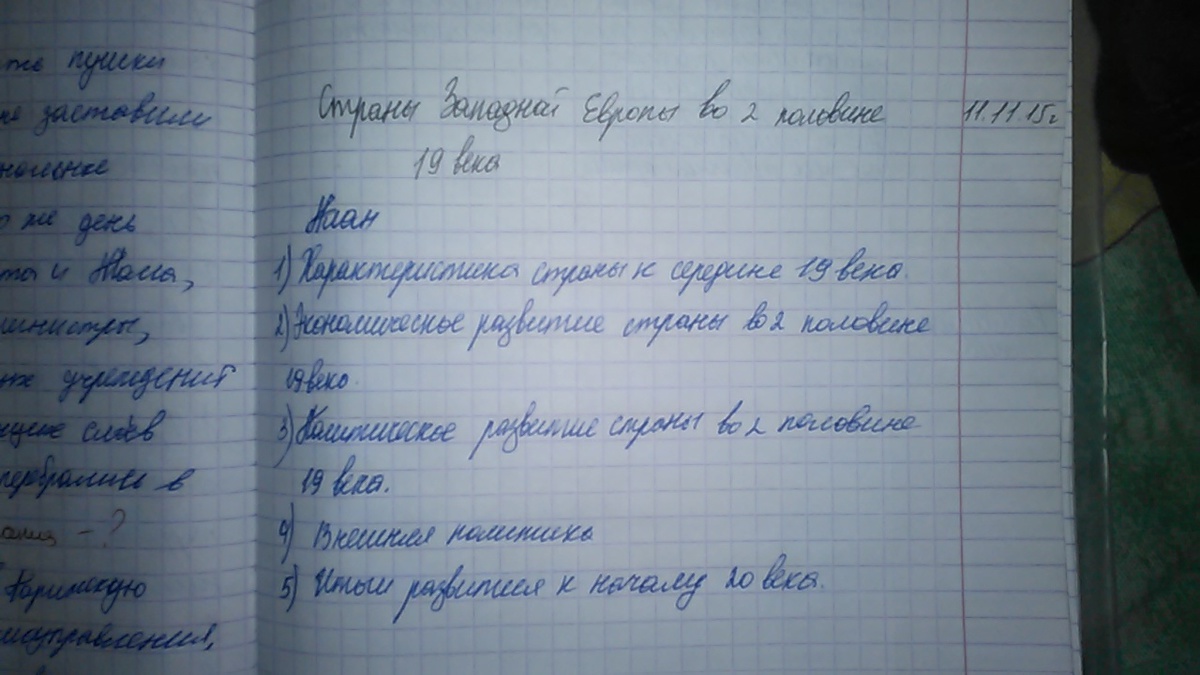 же пушки
не заставили
же день
и Тома,
министры,
учреждений
слоёв
перебрались в
- ?
Парижскую
Страны Западной Европы во 2 половине 11.11.15г
19 века
План
1) Характеристика страны к середине 19 века.
2) Экономическое развитие страны во 2 половине
19 века.
3) Политическое развитие страны во 2 половине
19 века.
4) Внешняя политика
5) Итоги развития к началу 20 века.